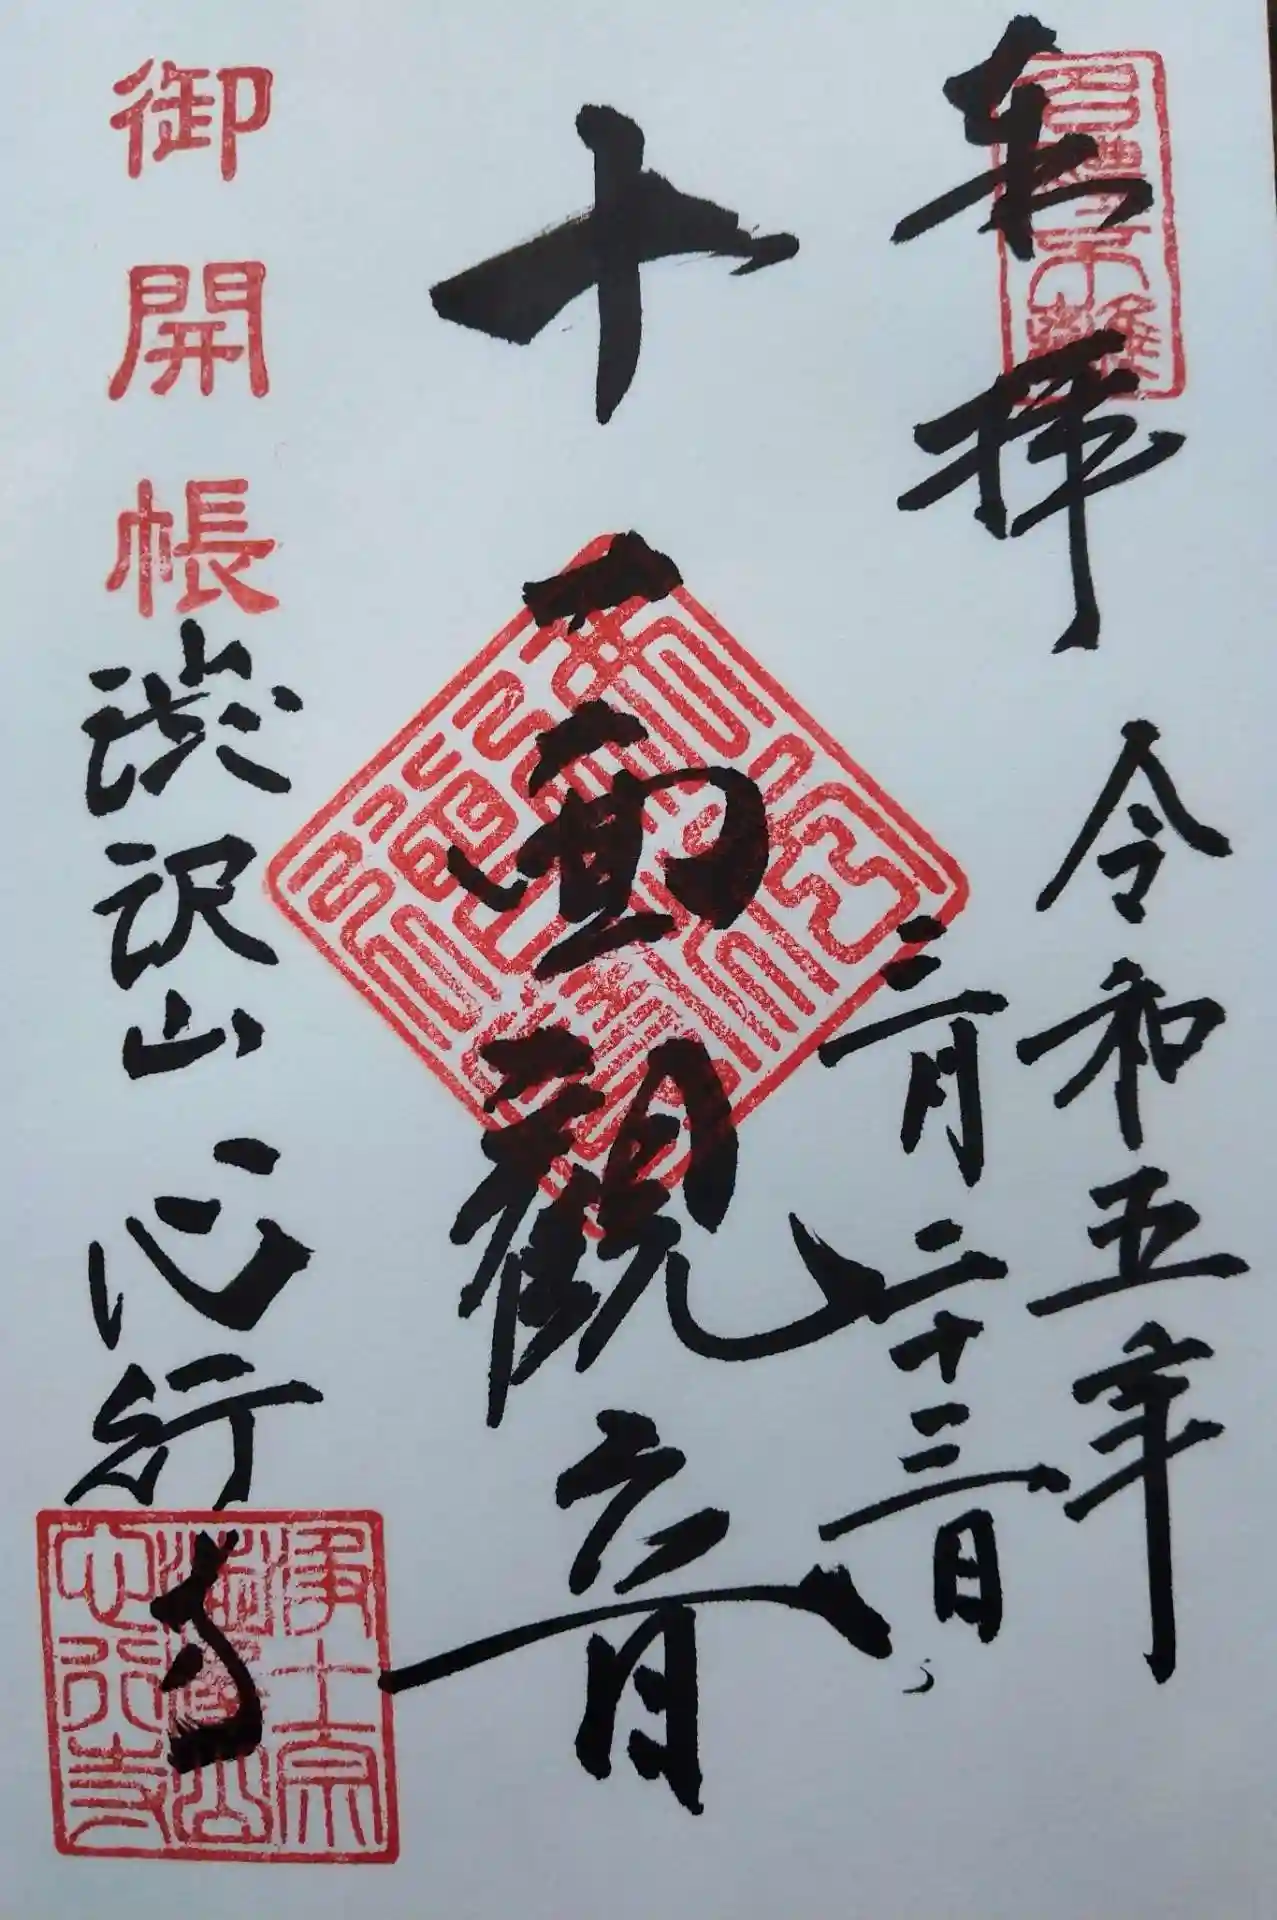 奉拝
令和五年
三月二十三日
十一面観音
御開帳
渋沢山
心行寺
浄土宗
心行寺